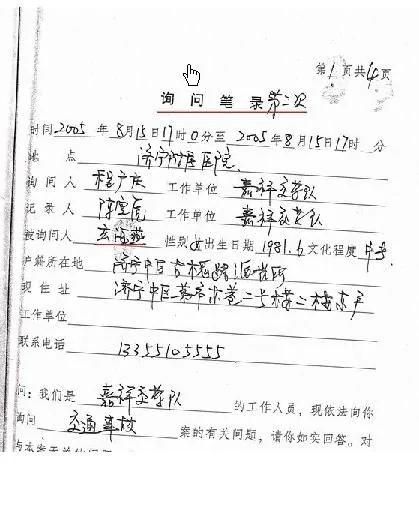 第1页共4页
询问笔录 第二次
时间2005年8月15日17时0分至2005年8月15日17时 分
地点 济宁附属医院
询问人 程广庆 工作单位 嘉祥交警队
记录人 工作单位 嘉祥交警队
被询问人 性别女出生日期1981.6文化程度中专
户籍所在地 济宁中区古槐路派出所
现住址 济宁中区 二号楼二楼东户
工作单位
联系电话 13355105555
问：我们是 嘉祥交警队 的工作人员，现依法向你
询问 交通事故 案的有关问题，请你如实回答。对
与本案无关的问题